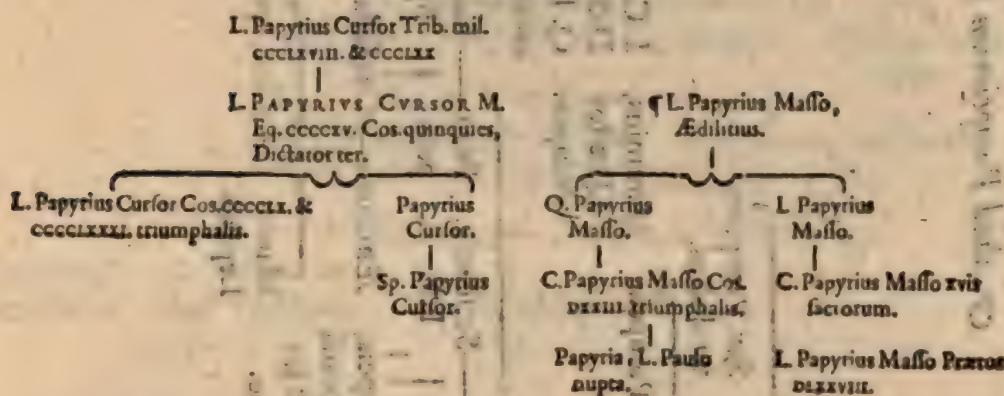 L. Papyrius Curſor Trib. mil.
CCCLXVIII. & CCCLXX
L. PAPYRIVS CVRSOR M.
Eq. CCCCXV. Cos. quinquies,
Dictator ter.
L. Papyrius Curſor Cos. CCCCLX. &
CCCCLXXXI. triumphalis.
Papyrius
Curſor.
Sp. Papyrius
Curſor.
¶ L. Papyrius Maſſo,
Ædilitius.
Q. Papyrius
Maſſo.
L Papyrius
Maſſo.
C. Papyrius Maſſo Cos.
DXXIII. triumphalis,
C. Papyrius Maſſo xvir
ſacrorum.
Papyria, L. Paulo
nupta.
L. Papyrius Maſſo Prætor
DLXXVIII.